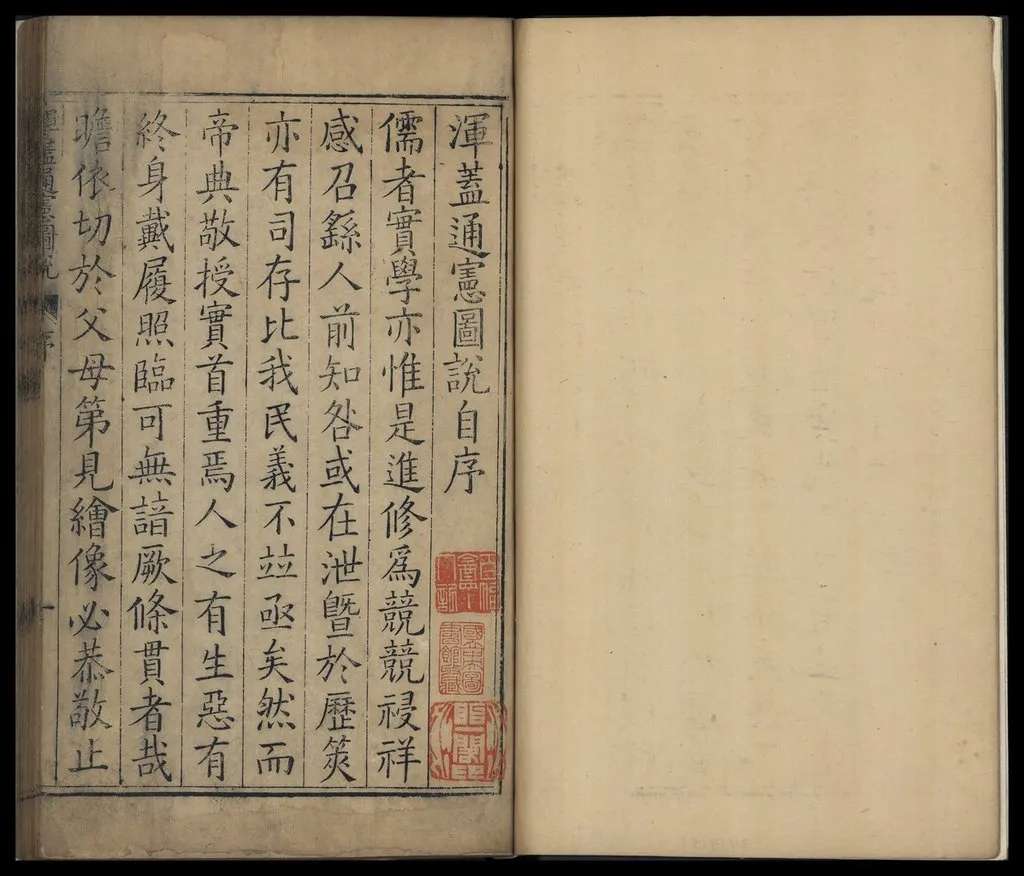 渾蓋通憲圖說自序
儒者實學亦惟是進修爲競競祲祥
感召繇人前知咎或在泄曁於歷筴
亦有司存比我民義不竝亟矣然而
帝典敬授實首重焉人之有生惡有
終身戴履照臨可無諳厥條貫者哉
瞻依切於父母第見繪像必恭敬止
渾蓋通憲圖說
序
一
國立北平圖書館藏